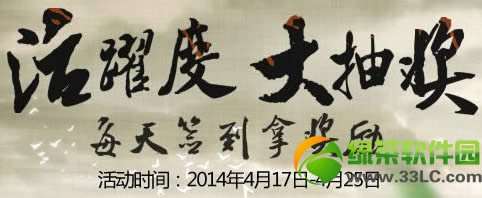 活躍度 大抽奖
每天签到拿奖励
活动时间：2014年4月17日-4月25日
绿茶软件园
www.33LC.com